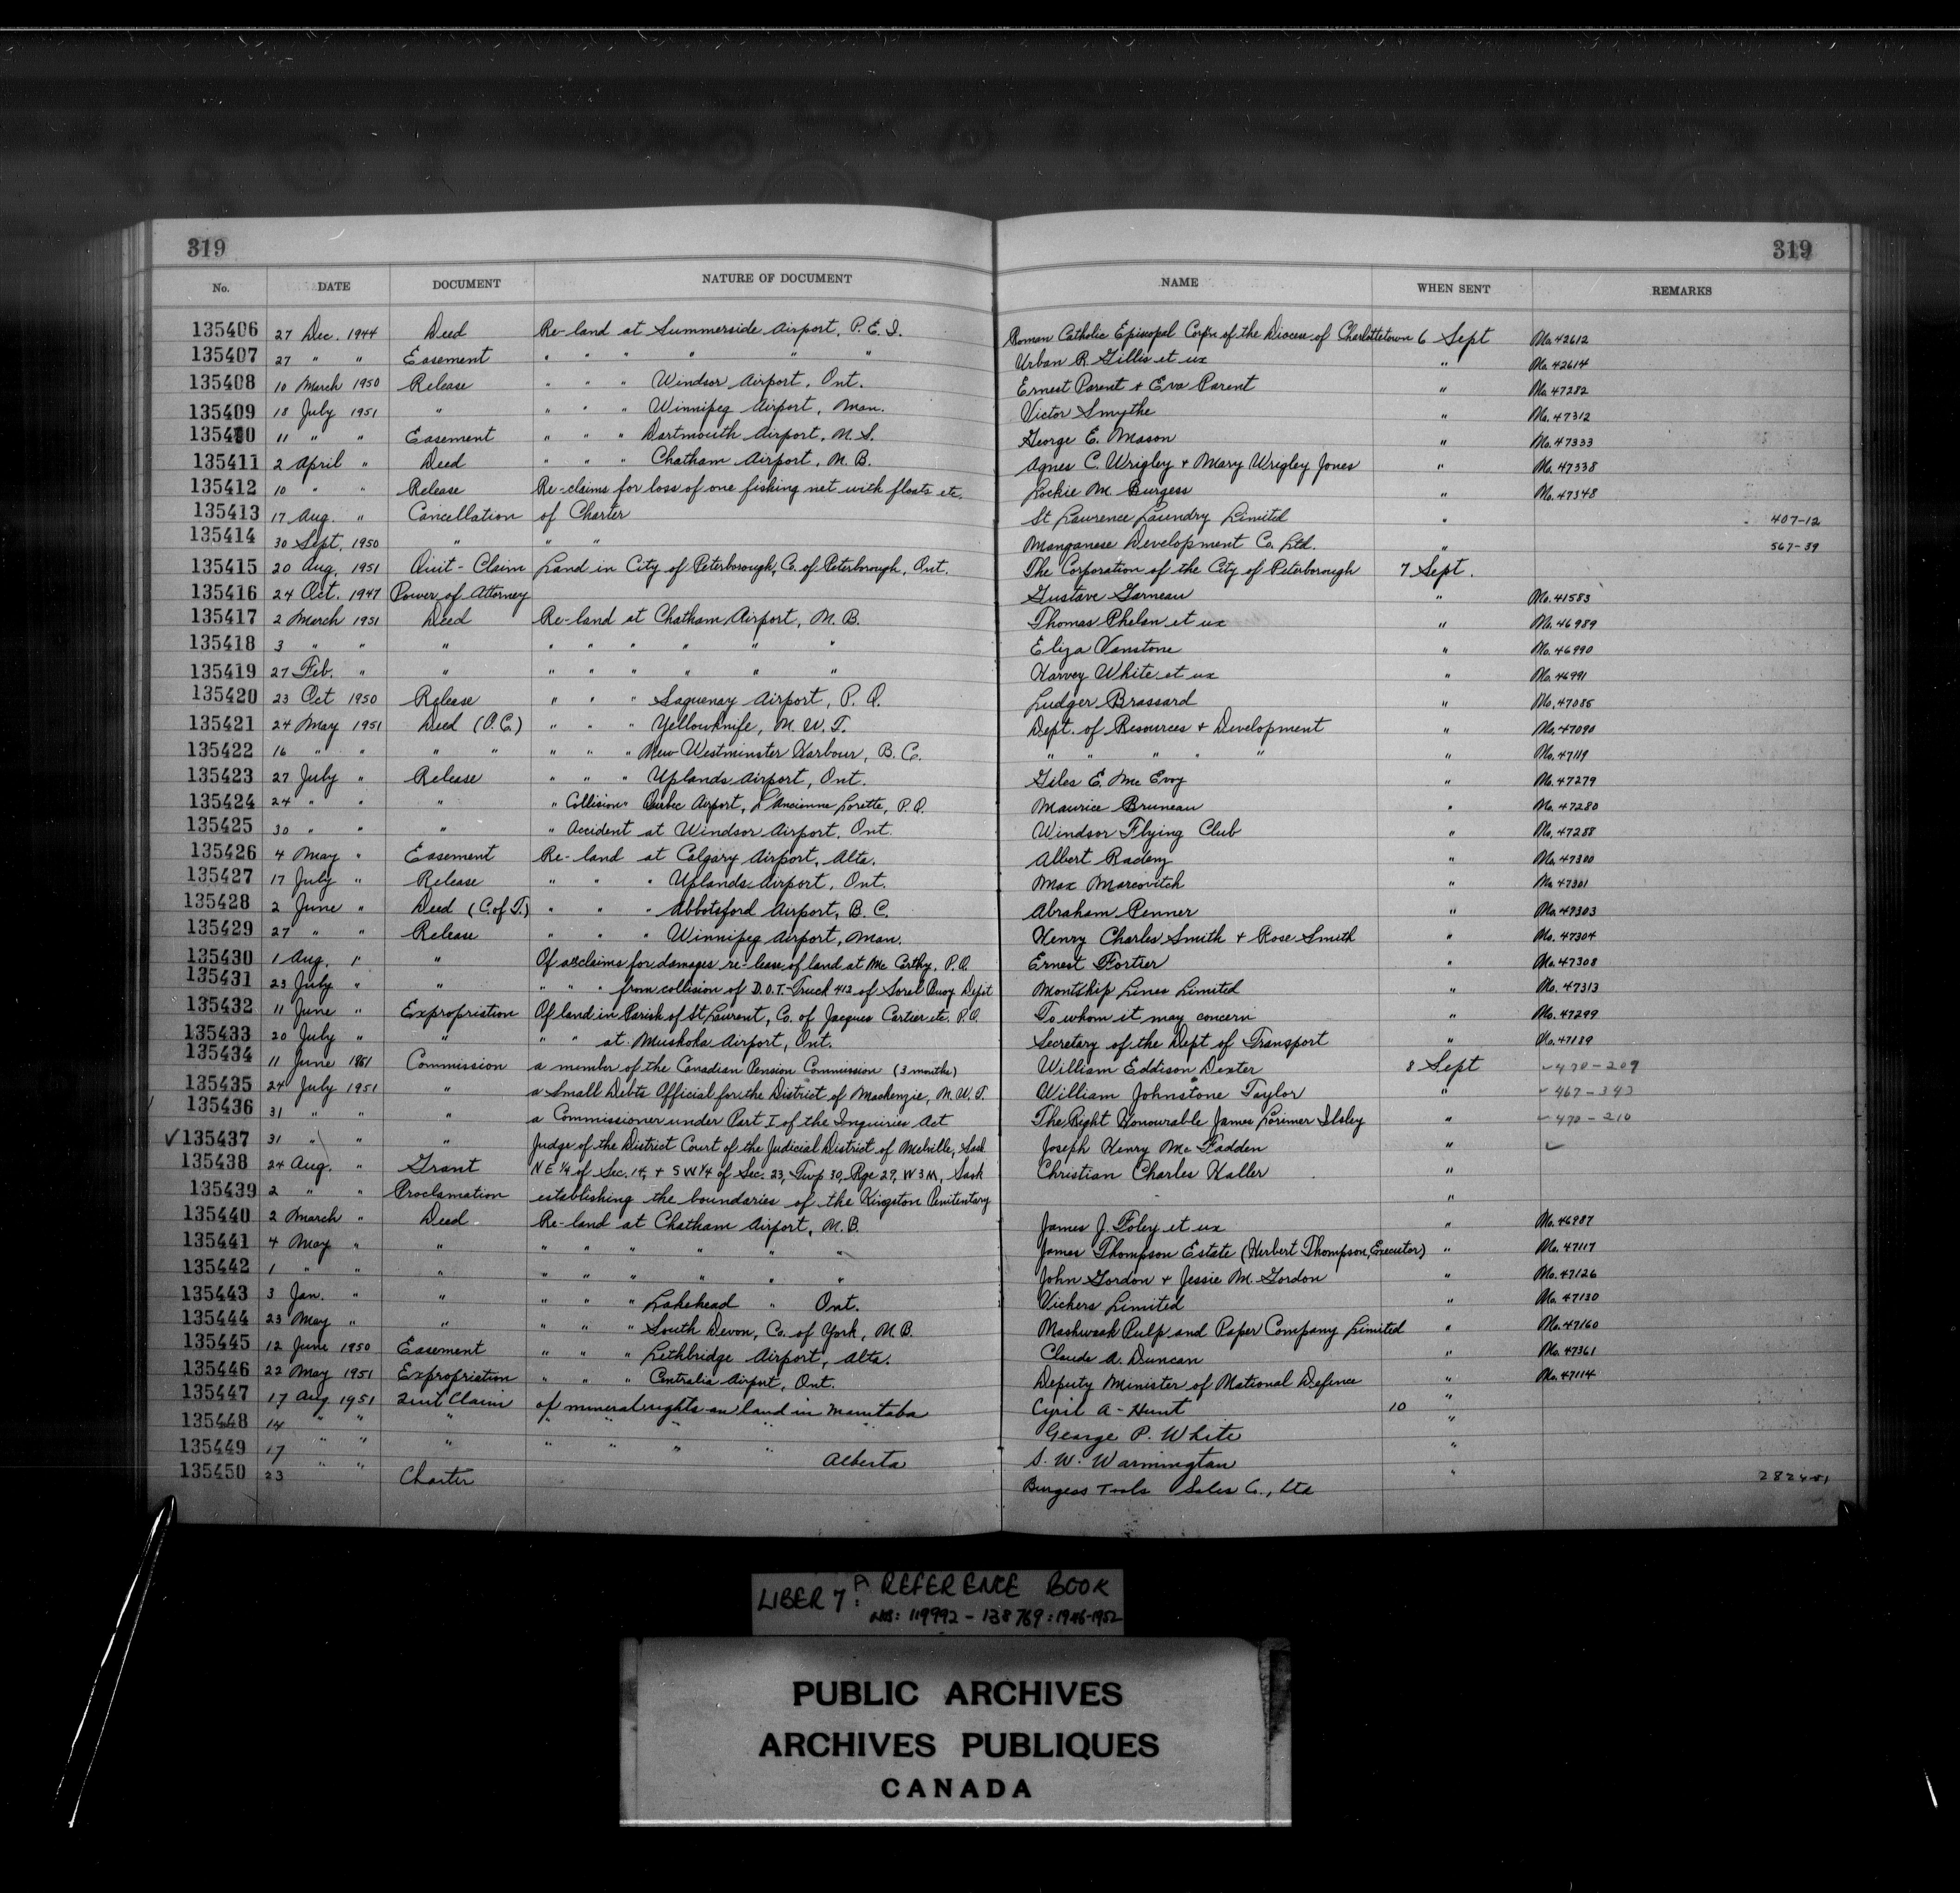 319 319
No. DATE DOCUMENT NATURE OF DOCUMENT NAME WHEN SENT REMARKS
135406 27 Dec. 1944 Deed Re-land at Summerside Airport, P.E.I. Roman Catholic Episcopal Corp'n of the Diocese of Charlottetown 6 Sept No. 42612
135407 27 " " Easement " " " " " " Urban R. Gillis et ux " No. 42614
135408 10 March 1950 Release " " " Windsor Airport, Ont. Ernest Parent & Eva Parent " No. 47282
135409 18 July 1951 " " " " Winnipeg Airport, Man. Victor Smythe " No. 47312
135410 11 " " Easement " " " Dartmouth Airport, N.S. George E. Mason " No. 47333
135411 2 April " Deed " " " Chatham Airport, N.B. Agnes C. Wrigley & Mary Wrigley Jones " No. 47338
135412 10 " " Release Re-claims for loss of one fishing net with floats etc. Lockie M. Burgess " No. 47348
135413 17 Aug. " Cancellation of Charter St Lawrence Laundry Limited " 407-12
135414 30 Sept. 1950 " " " Manganese Development Co. Ltd. " 567-39
135415 20 Aug. 1951 Quit-Claim Land in City of Peterborough, Co. of Peterborough, Ont. The Corporation of the City of Peterborough 7 Sept.
135416 24 Oct. 1947 Power of Attorney Gustave Garneau " No. 41583
135417 2 March 1951 Deed Re-land at Chatham Airport, N.B. Thomas Phelan et ux " No. 46989
135418 3 " " " " " " " " " Eliza Vanstone " No. 46990
135419 27 Feb. " " " " " " " " Harvey White et ux " No. 46991
135420 23 Oct 1950 Release " " " Saguenay Airport, P.Q. Ludger Brassard " No. 47085
135421 24 May 1951 Deed (O.C.) " " " Yellowknife, N.W.T. Dept. of Resources & Development " No. 47090
135422 16 " " " " " " " New Westminster Harbour, B.C. " " " " " No. 47119
135423 27 July " Release " " " Uplands Airport, Ont. Giles E. Mc Evoy " No. 47279
135424 24 " " " " Collision " Quebec Airport, L'Ancienne Lorette, P.Q. Maurice Bruneau " No. 47280
135425 30 " " " " Accident at Windsor Airport, Ont. Windsor Flying Club " No. 47288
135426 4 May " Easement Re-land at Calgary Airport, Alta. Albert " No. 47300
135427 17 July " Release " " " Uplands Airport, Ont. Max Marcovitch " No. 47301
135428 2 June " Deed (C.of T.) " " " Abbotsford Airport, B.C. Abraham Penner " No. 47303
135429 27 " " Release " " " Winnipeg Airport, Man. Henry Charles Smith & Rose Smith " No. 47304
135430 1 Aug. " " Of all claims for damages re-lease of land at Mc Carthy, P.Q. Ernest Fortier " No. 47308
135431 23 July " " " " " from collision of D.O.T.-Truck 412 of Sorel Buoy Depot Montship Lines Limited " No. 47313
135432 11 June " Expropriation Of land in Parish of St Laurent, Co. of Jacques Cartier etc. P.Q. To whom it may concern " No. 47299
135433 20 July " " " " at Muskoka Airport, Ont. Secretary of the Dept of Transport " No. 47189
135434 11 June 1951 Commission a member of the Canadian Pension Commission (3 months) William Eddison Dexter 8 Sept ✓470-209
135435 24 July 1951 " a Small Debts Official for the District of Mackenzie, N.W.T. William Johnstone Taylor " ✓467-343
135436 31 " " " a Commissioner under Part I of the Inquiries Act The Right Honourable James Lorimer Ilsley " ✓470-210
✓135437 31 " " " Judge of the District Court of the Judicial District of Melville, Sask Joseph Henry Mc Fadden " ✓
135438 24 Aug. " Grant N E ¼ of Sec. 14, + S W ¼ of Sec. 23, Twp 30, Rge 27, W 3 M, Sask Christian Charles Haller "
135439 2 " " Proclamation establishing the boundaries of the Kingston Penitentary "
135440 2 March " Deed Re-land at Chatham Airport, N.B. James J. Foley et ux " No. 46987
135441 4 May " " " " " " " " James Thompson Estate (Herbert Thompson, Executor) " No. 47117
135442 1 " " " " " " " " " John Gordon & Jessie M. Gordon " No. 47126
135443 3 Jan. " " " " " Lakehead " Ont. Vickers Limited " No. 47130
135444 23 May " " " " " South Devon, Co. of York, N.B. Nashwaak Pulp and Paper Company Limited " No. 47160
135445 12 June 1950 Easement " " " Lethbridge Airport, Alta. Claude A. Duncan " No. 47361
135446 22 May 1951 Expropriation " " " Centralia Airport, Ont. Deputy Minister of National Defence " No. 47114
135447 17 Aug 1951 Quit Claim of mineral rights on land in Manitoba Cyril A. Hunt 10 "
135448 14 " " " " " " " " George P. White "
135449 17 " " " " " " " Alberta S. W. Warmington "
135450 23 " " Charter Burgess Tools Sales Co., Ltd "
LIBER 7: A REFERENCE BOOK
NOS: 119992 - 138769: 1946-1952
PUBLIC ARCHIVES
ARCHIVES PUBLIQUES
CANADA